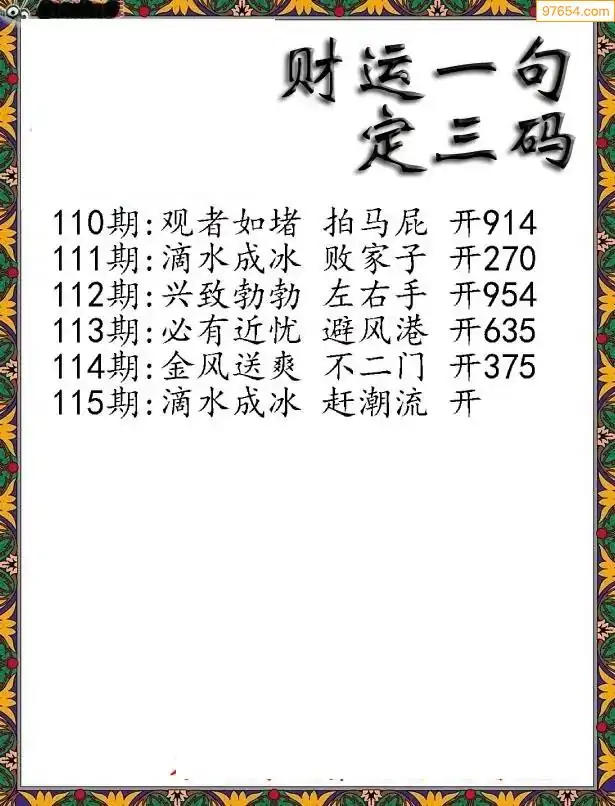 97654.com
财运一句
定三码
110期:观者如堵 拍马屁 开914
111期:滴水成冰 败家子 开270
112期:兴致勃勃 左右手 开954
113期:必有近忧 避风港 开635
114期:金风送爽 不二门 开375
115期:滴水成冰 赶潮流 开